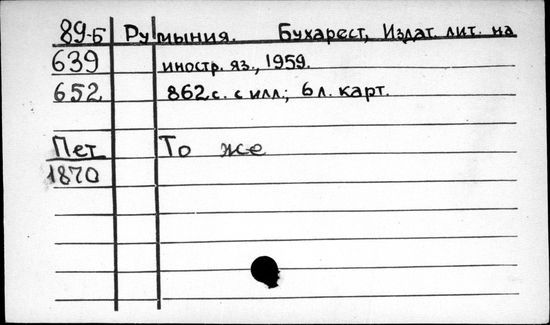 89-Б Румыния. Бухарест, Издат. лит. на
639 иностр. яз., 1959.
652 862 с. с илл.; 6 л. карт.
Пет То же
1870